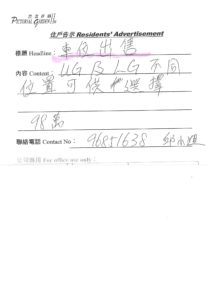 PICTORIAL GARDEN II
住戶告示 Residents' Advertisement
標題 Headline: 車位出售
內容 Content: UG 及 LG 不同
位置可供你選擇
98萬
聯絡電話 Contact No: 96851638 邱小姐
公司專用 For office use only: